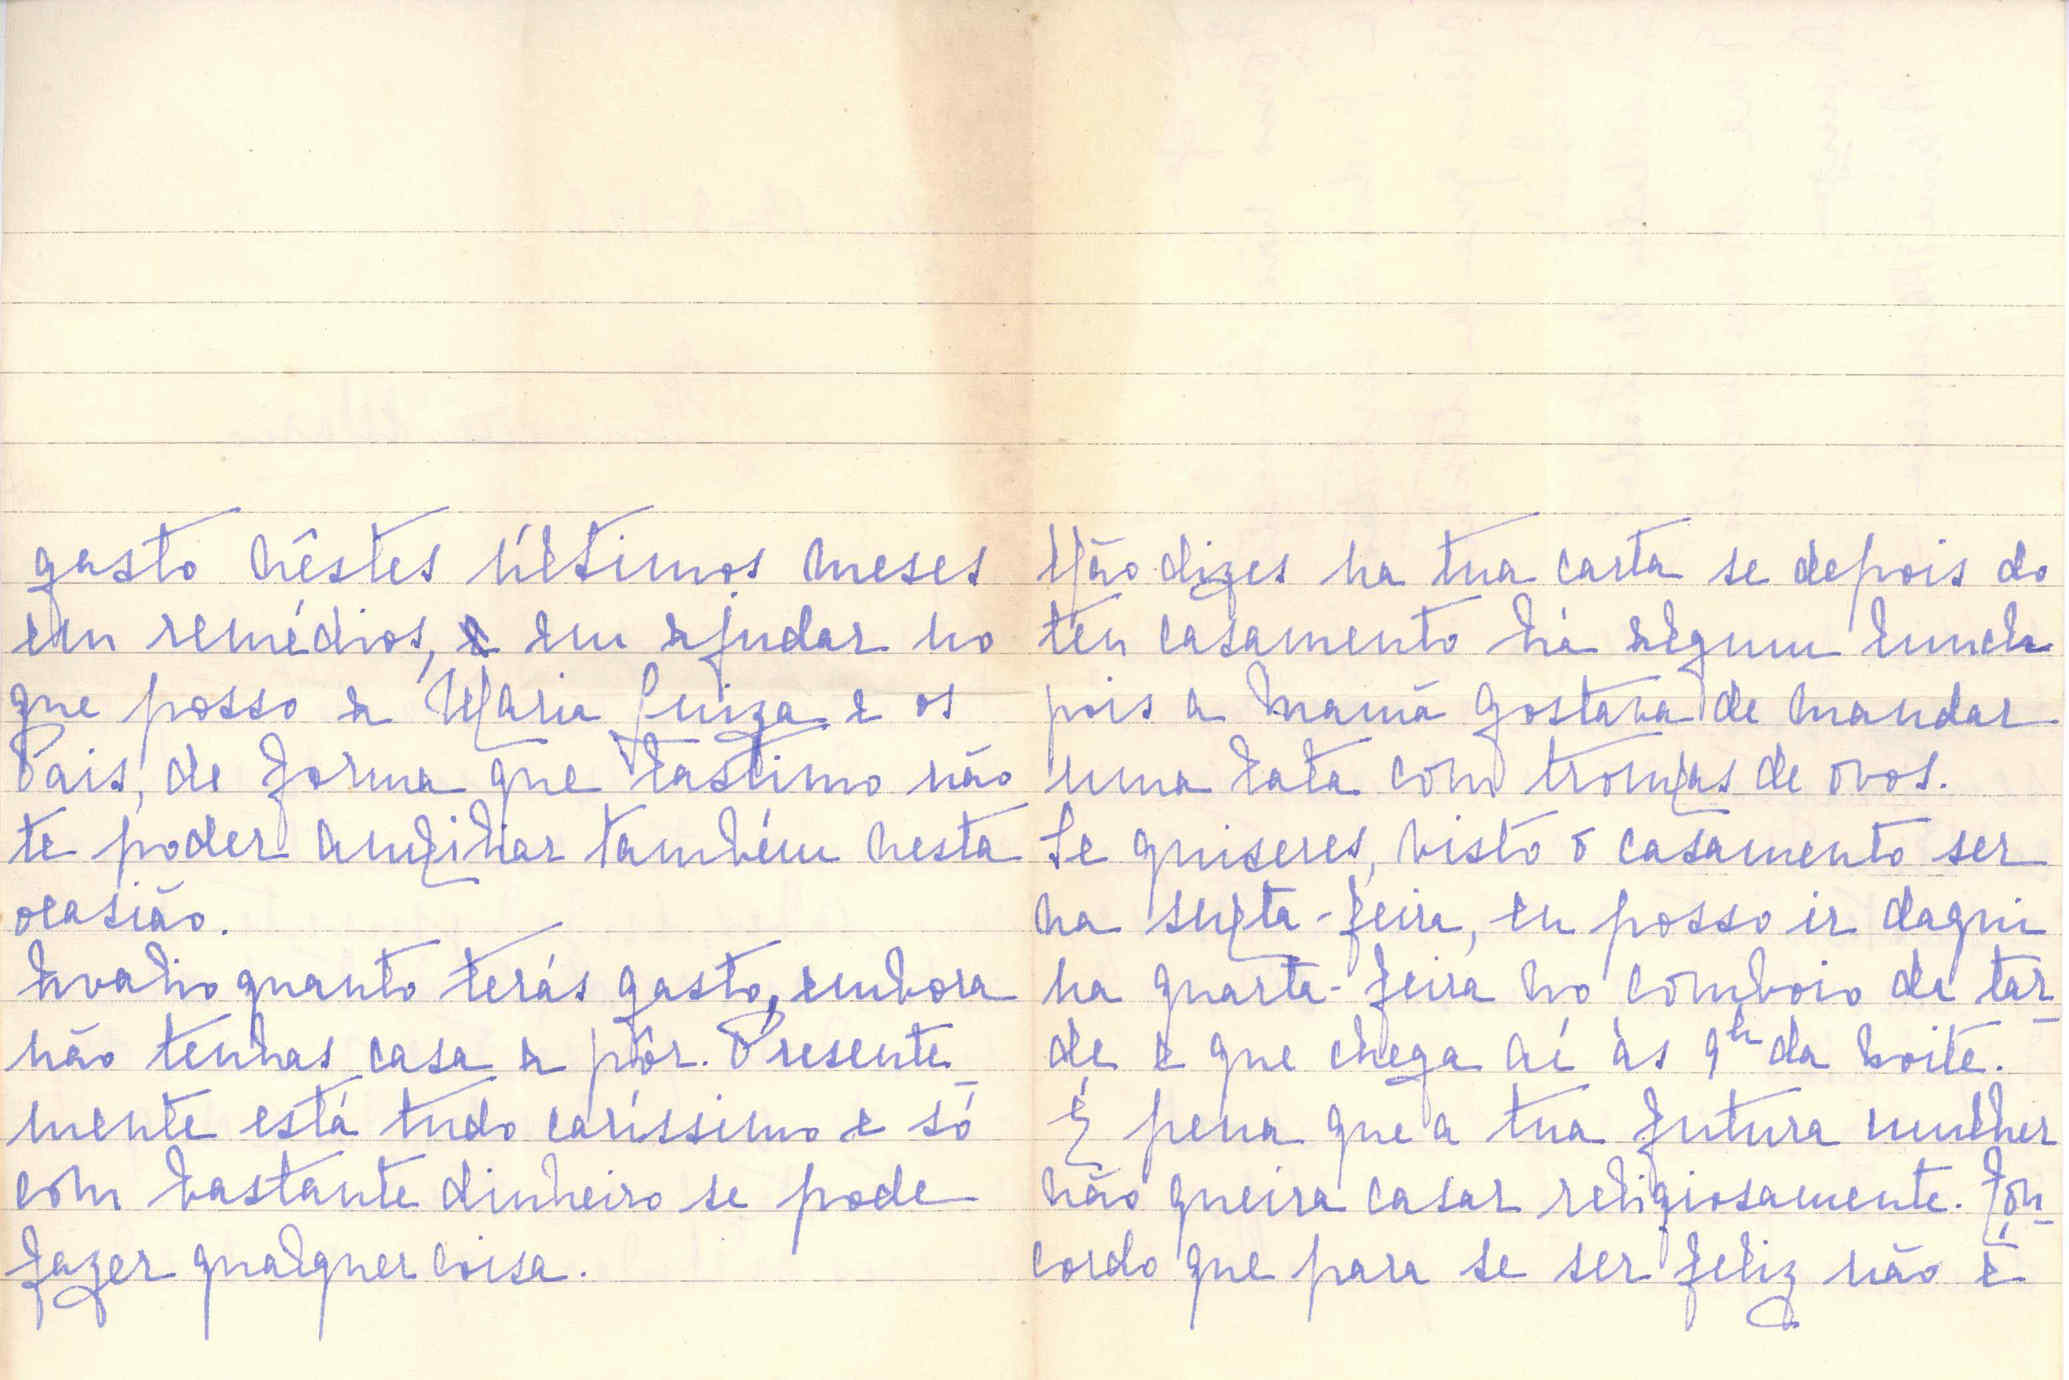 gasto nêstes últimos meses
em remédios, e em ajudar no
que posso a Maria Luiza e os
Pais, de forma que lastimo não
te poder auxiliar também nesta
ocasião.
Avalio quanto terás gasto, embora
não tenhas casa a pôr. Presente_
mente está tudo caríssimo e só
com bastante dinheiro se pode
fazer qualquer coisa.
Não dizes na tua carta se depois do
teu casamento há algum lunch
pois a Mamã gostava de mandar
uma lata com trouxas de ovos.
Se quiseres, visto o casamento ser
na sexta-feira, eu posso ir daqui
na quarta-feira no comboio da tar_
de e que chega aí às 9h da noite.
É pena que a tua futura mulher
não queira casar religiosamente. Con_
cordo que para se ser feliz não é